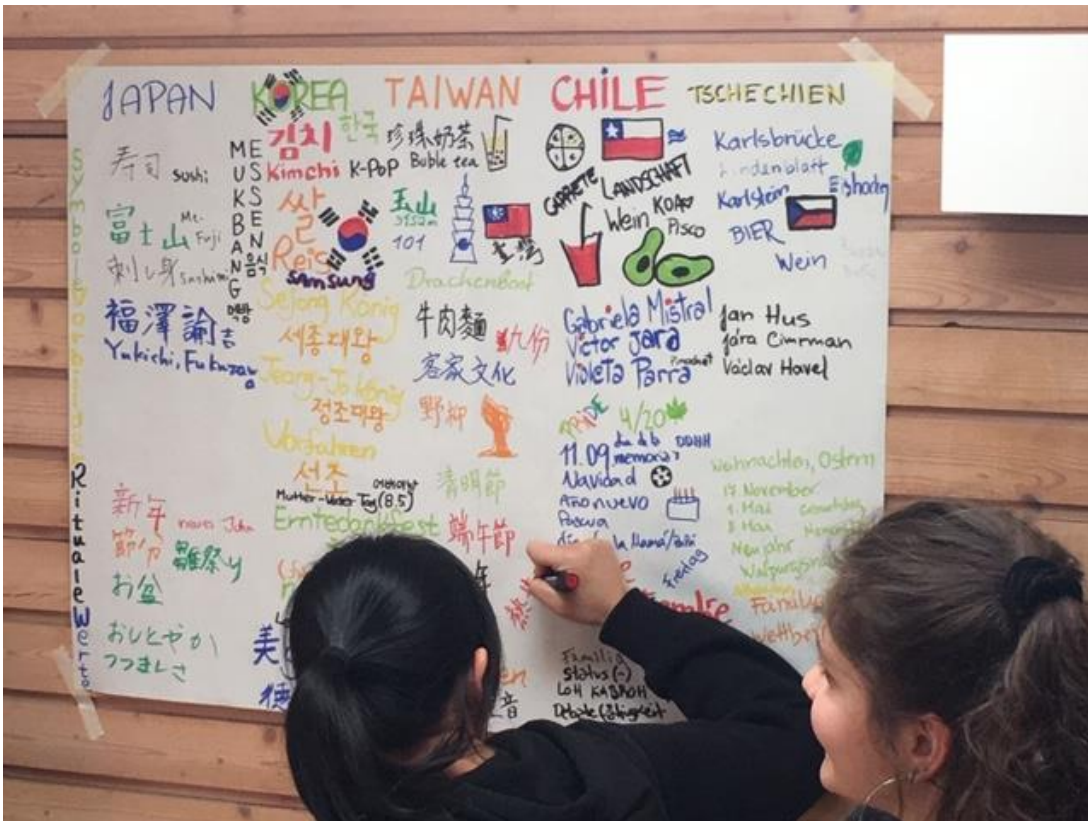 JAPAN
KOREA
TAIWAN
CHILE
TSCHECHIEN
Symbole
Vorbilder
Rituale
Werte
寿司 sushi
富士山 Mt. Fuji
刺し身 sashimi
福澤諭吉
Yukichi, Fukuzawa
新年
節分
雛祭り
お盆
おしとやか
つつましさ
MUKBANG
ESSEN
음식
먹방
김치 한국
Kimchi K-POP
쌀
Reis
SAMSUNG
Sejong König
세종대왕
Jeong-Jo König
정조대왕
Vorfahren
선조
Mutter-Vater Tag (8.5)
Erntedankfest
美
德
珍珠奶茶
Buble tea
玉山
3952m
101
台灣
Drachenboot
牛肉麵 九份
客家文化
野柳
清明節
端午節
年
音
CARRETE
LANDSCHAFT
Wein
Pisco
Gabriela Mistral
Victor Jara
Violeta Parra Pinochet
PRIDE 4/20
11.09 día de la memoria DDHH
Navidad
Año nuevo
Pascua
Freitag
Familia
status (-)
LOH KABROH
Debattefähigkeit
Karlsbrücke
Lindenblatt
Karlstein Eishockey
BIER
Wein
Jan Hus
Jára Cimrman
Václav Havel
Weihnachten, Ostern
17. November
1. Mai
8. Mai
Neujahr